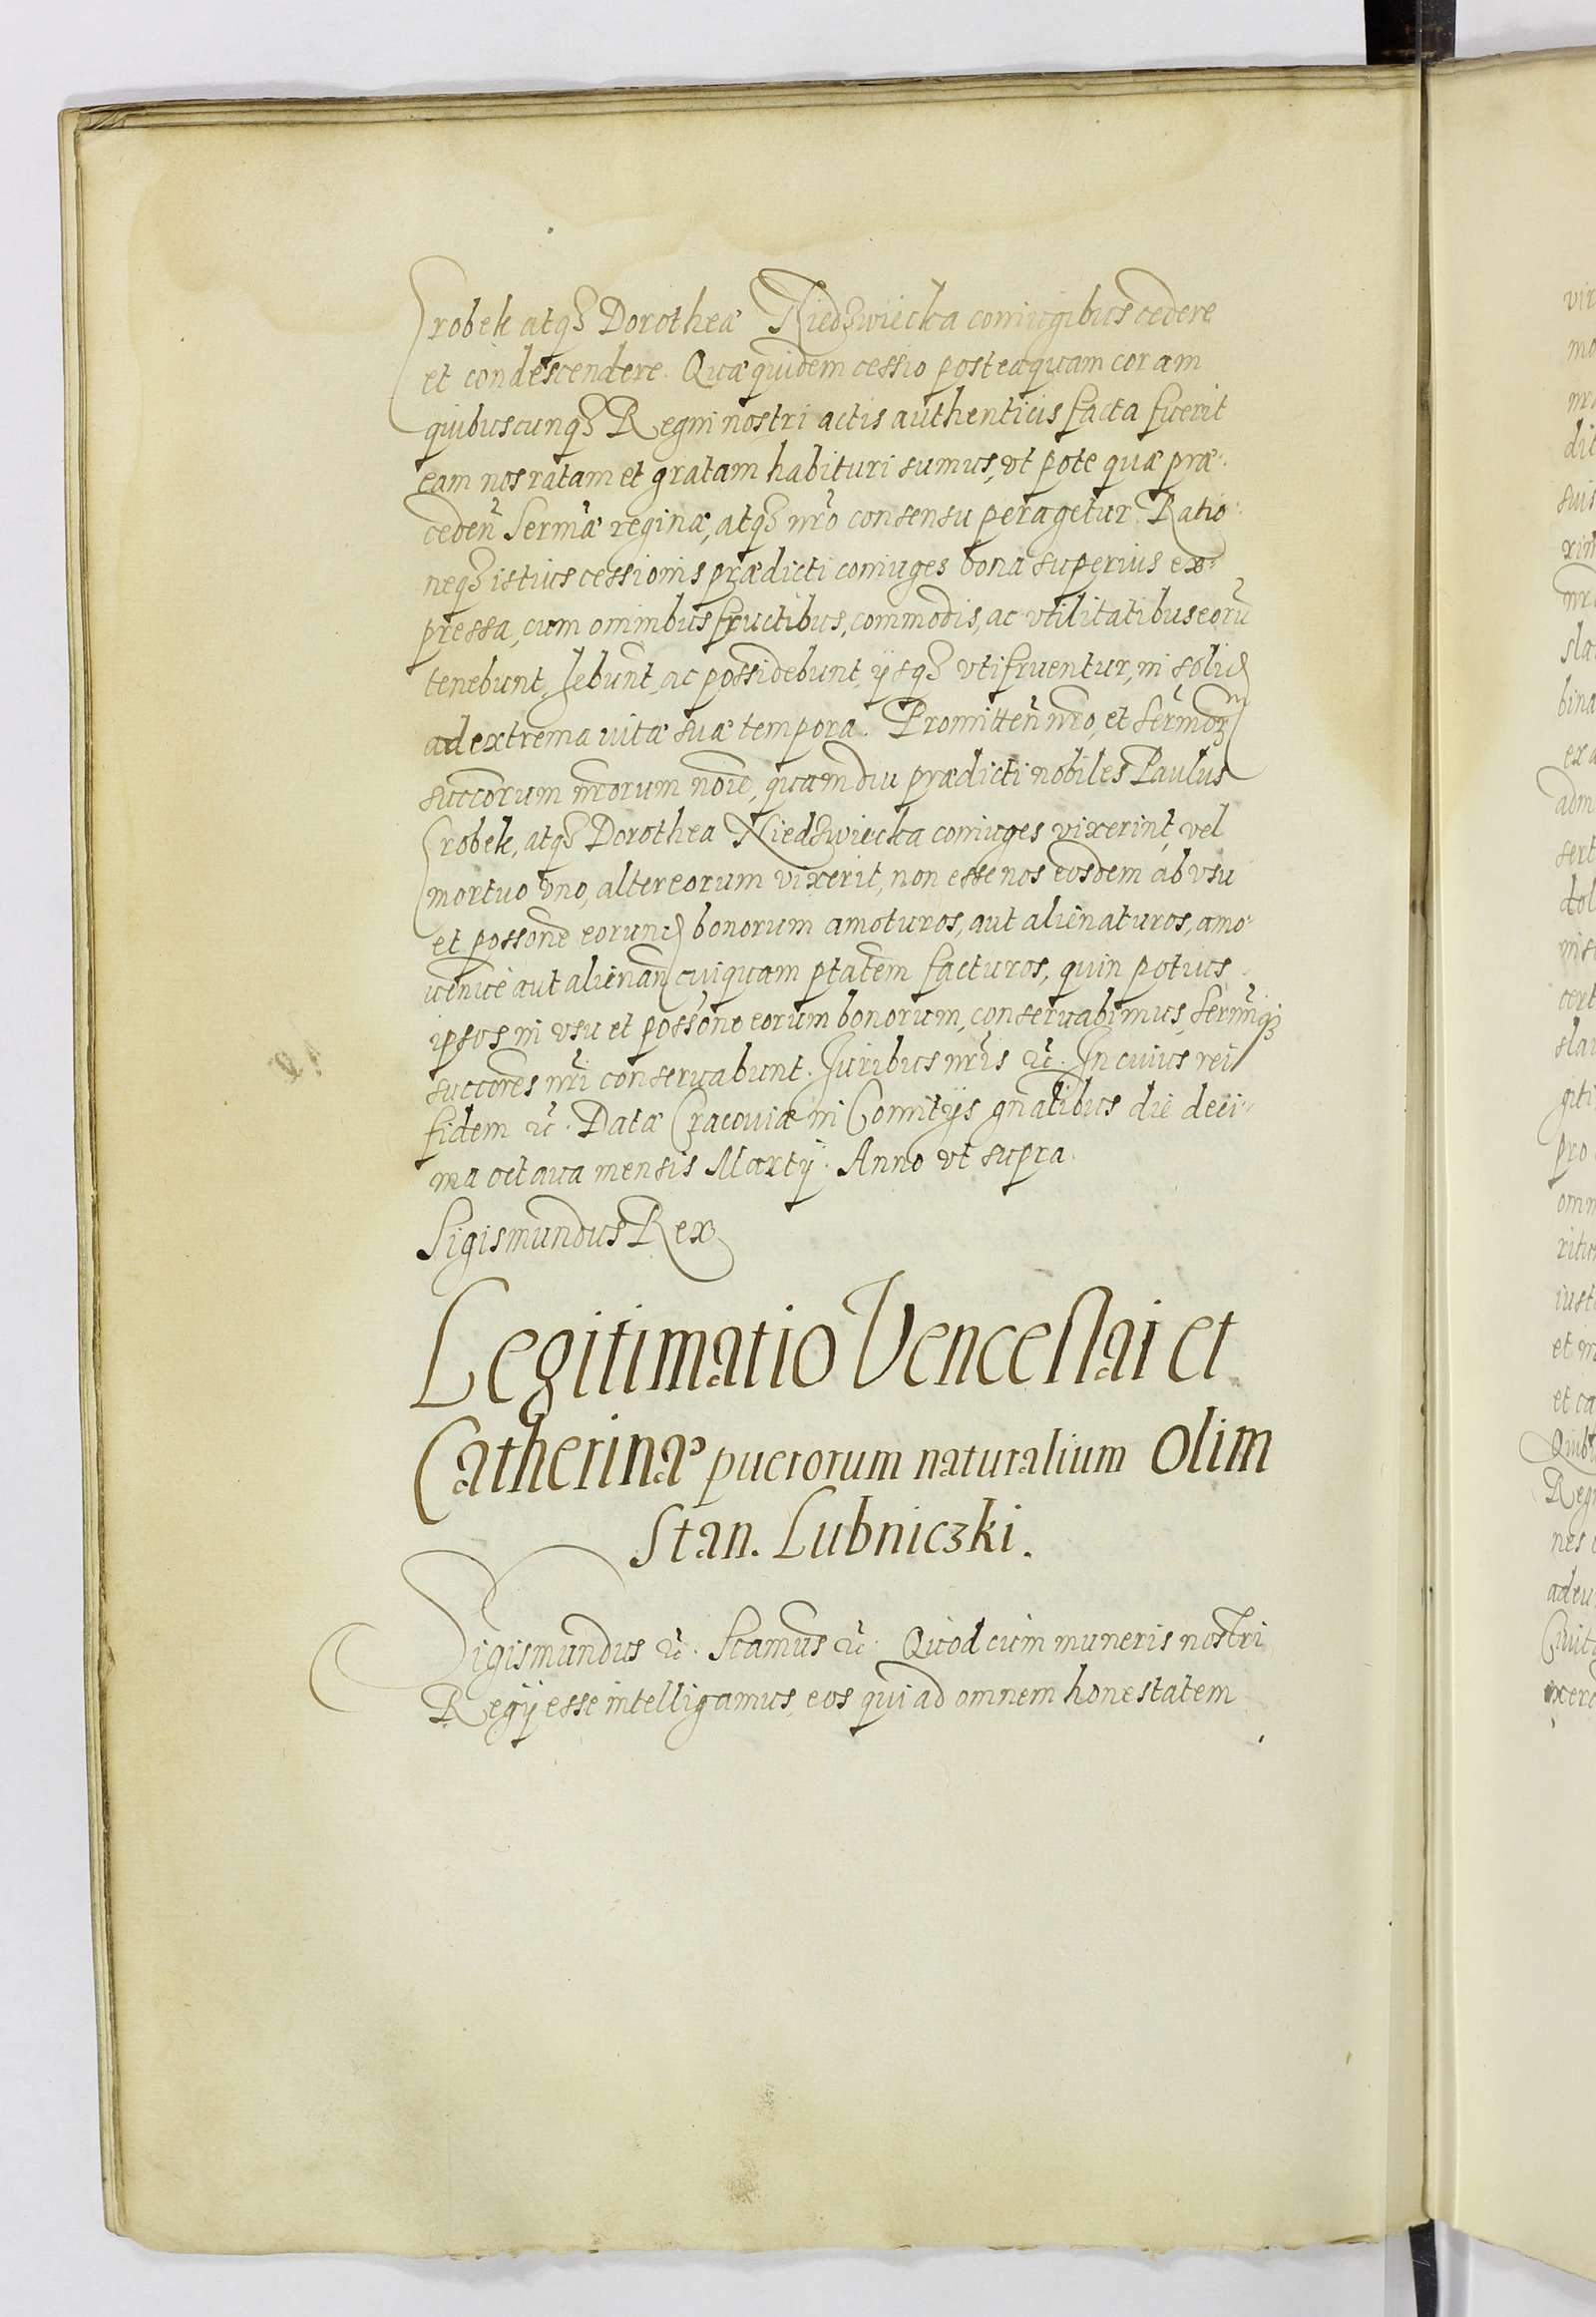 Crobek atqꝫ Dorotheæ Niedzwiecka coniugibus cedere
et condescendere. Quæ quidem cessio posteaquam coram
quibuscunqꝫ Regni nostri actis authenticis facta fuerit
eam nos ratam et gratam habituri sumus, vt pote quæ præ-
ceden̄ Serm̄æ reginæ, atqꝫ nr̄o consensu peragetur. Ratio-
neqꝫ istius cessionis prædicti coniuges bona superius ex-
pressa, cum omnibus fructibus, commodis, ac vtilitatibus eorū
tenebunt, hebunt, ac possidebunt, ijsqꝫ vtifruentur, in solid
ad extrema vitæ suæ tempora. Promitten̄ nr̄o, et Serm̄orꝫ
succorum nr̄orum noīe, quamdiu prædicti nobiles Paulus
Crobek, atqꝫ Dorothea Niedzwiecka coniuges vixerint, vel
mortuo vno, alter eorum vixerit, non esse nos eosdem ab vsu
et possone eorund bonorum amoturos, aut alienaturos, amo-
uen̄ue aut alienand cuiquam ptatem facturos, quin potius
ipsos in vsu et possone eorum bonorum, conseruabimus, Serm̄iqꝫ
succores nr̄i conseruabunt. Juribus nr̄is ꝛc̄. In cuius rei
fidem ꝛc̄. Datæ Cracouiæ in Comitijs gn̄alibus die deci-
ma octaua mensis Martij. Anno vt supra.
Sigismundus Rex
Legitimatio Venceslai et
Catherinæ puerorum naturalium olim
Stan. Lubniczki.
Sigismundus ꝛc̄. Scamus ꝛc̄. Quod cum muneris nostri
Regij esse intelligamus, eos qui ad omnem honestatem